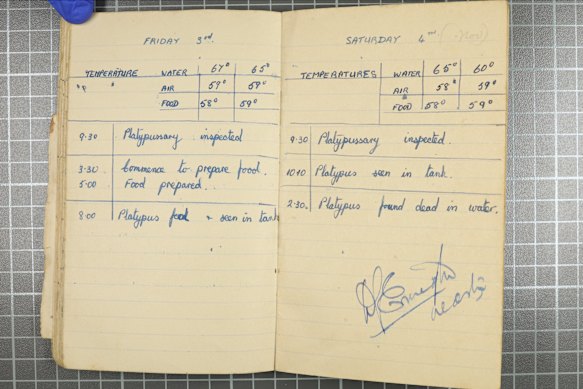 FRIDAY 3rd
TEMPERATURE WATER 67° 65°
" " AIR 57° 59°
FOOD 58° 59°
9.30 Platypussary inspected
3.30 Commence to prepare food.
5.00 Food prepared..
8.00 Platypus food & seen in tank
SATURDAY 4th (-Nov)
TEMPERATURES WATER 65° 60°
AIR 58° 59°
FOOD 58° 59°
9.30 Platypussary inspected.
10.10 Platypus seen in tank.
2.30. Platypus found dead in water.